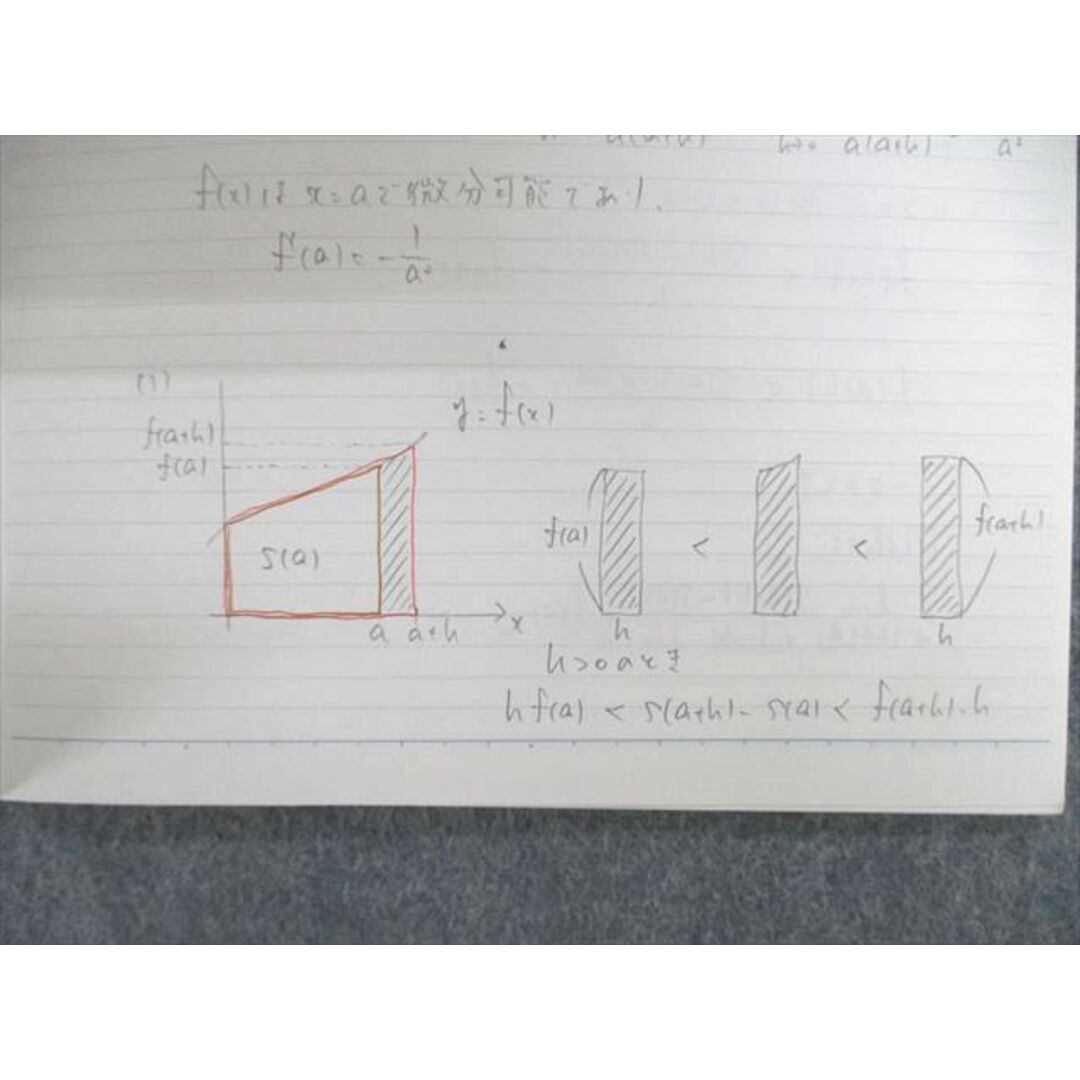 h→0 a(a+h) a²
f(x)は x=aで微分可能であり.
f'(a) = -1/a²
(1)
y = f(x)
f(a+h)
f(a)
S(a)
a a+h x
f(a) < < f(a+h)
h h
h>0のとき
h f(a) < S(a+h) - S(a) < f(a+h)・h